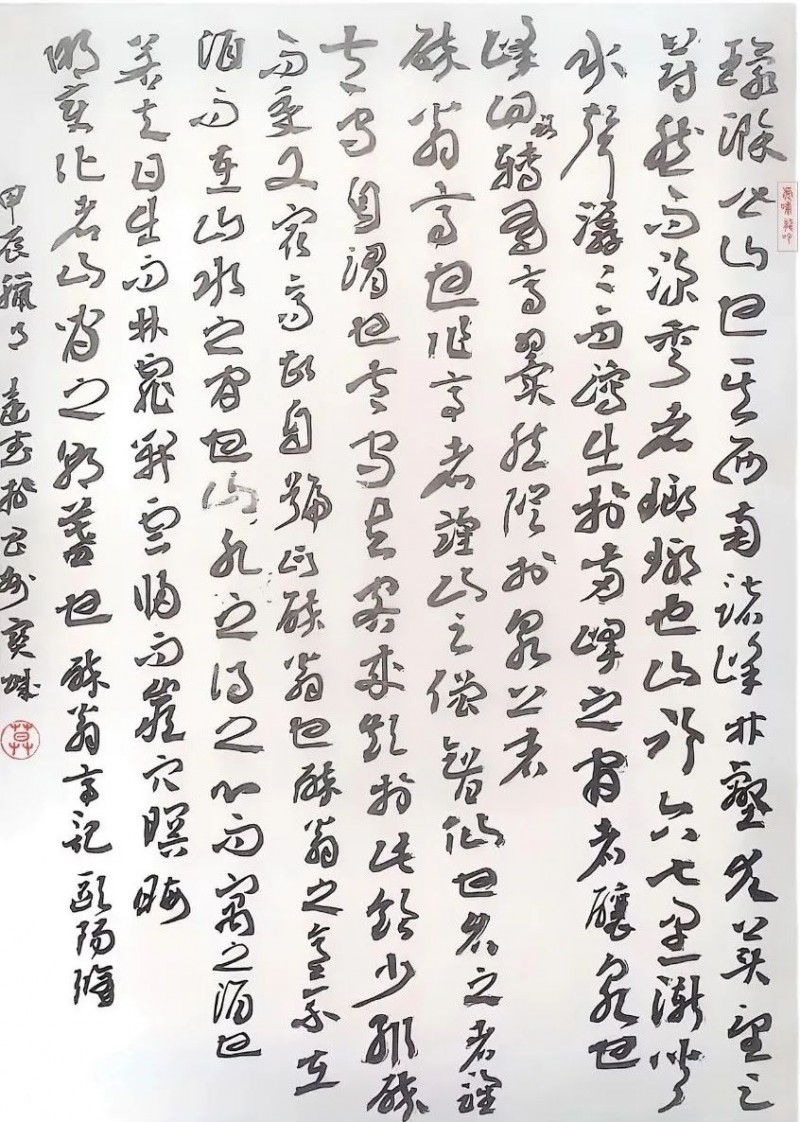 環滁皆山也其西南諸峰林壑尤美望之
蔚然而深秀者瑯琊也山行六七里漸聞
水聲潺潺而瀉出於兩峰之間者釀泉也
峰回路轉有亭翼然臨於泉上者
醉翁亭也作亭者誰山之僧智仙也名之者誰
太守自謂也太守與客來飲於此飲少輒醉
而年又最高故自號曰醉翁也醉翁之意不在
酒而在山水之間也山水之得之心而寓之酒也
若夫日出而林霏開雲歸而巖穴暝晦
明變化者山間之朝暮也醉翁亭記歐陽脩
甲辰臘月